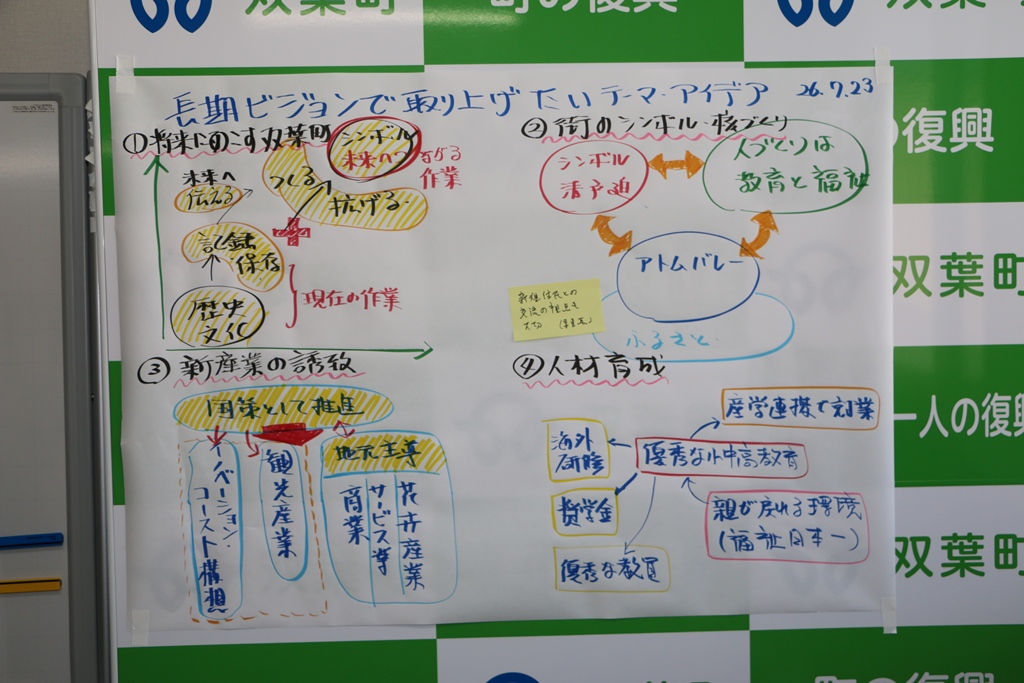 双葉町
町の復興
双葉町
長期ビジョンで取り上げたいテーマ・アイデア 26.7.23
①将来にのこす双葉町
シンボル
未来への
作業
つくる
拡げる
未来へ
伝える
記録
保存
歴史
文化
現在の作業
②街のシンボル・核づくり
シンボル
人づくりは
教育と福祉
アトムバレー
ふるさと
③新産業の誘致
国策として推進
イノベーション・
コースト構想
観光産業
地元主導
花卉産業
サービス等
商業
④人材育成
産学連携で起業
海外
研修
優秀な小中高教育
奨学金
親が戻れる環境
(福祉日本一)
優秀な教員
の復興
双葉町
一人の復興
双葉町
町の復興